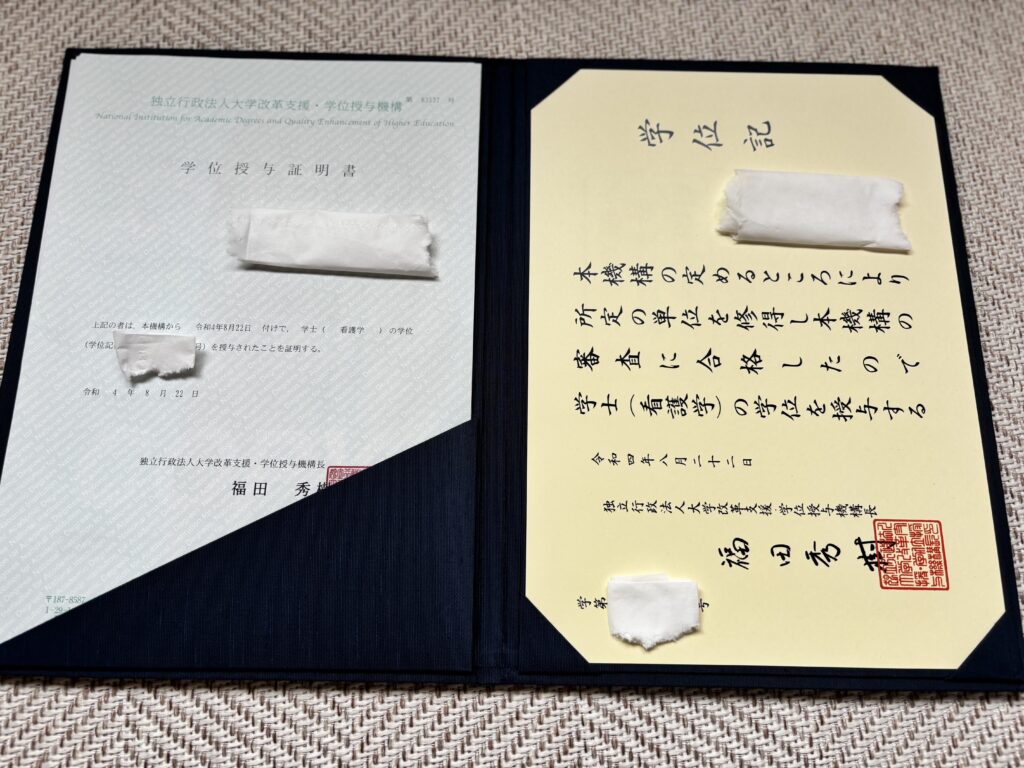 独立行政法人大学改革支援・学位授与機構
National Institution for Academic Degrees and Quality Enhancement of Higher Education
学位授与証明書
上記の者は、本機構から 令和4年8月22日 付けで、 学士( 看護学 )の学位
(学位記 号)を授与されたことを証明する。
令和 4 年 8 月 22 日
独立行政法人大学改革支援・学位授与機構長
福田 秀
〒187-8587
学位記
本機構の定めるところにより
所定の単位を修得し本機構の
審査に合格したので
学士(看護学)の学位を授与する
令和四年八月二十二日
独立行政法人大学改革支援・学位授与機構長
福田秀樹
学第 号